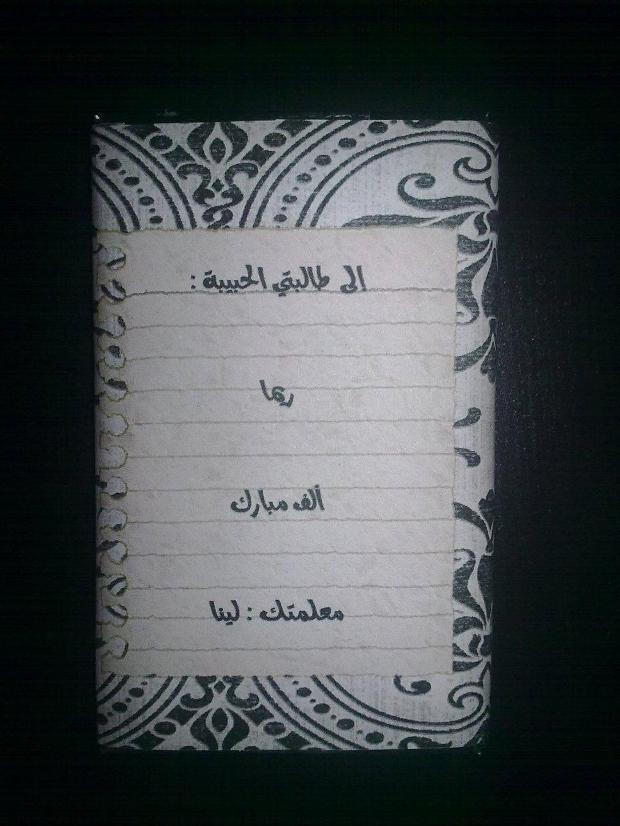 الى طالبتي الحبيبة :
ريما
ألف مبارك
معلمتك : لينا